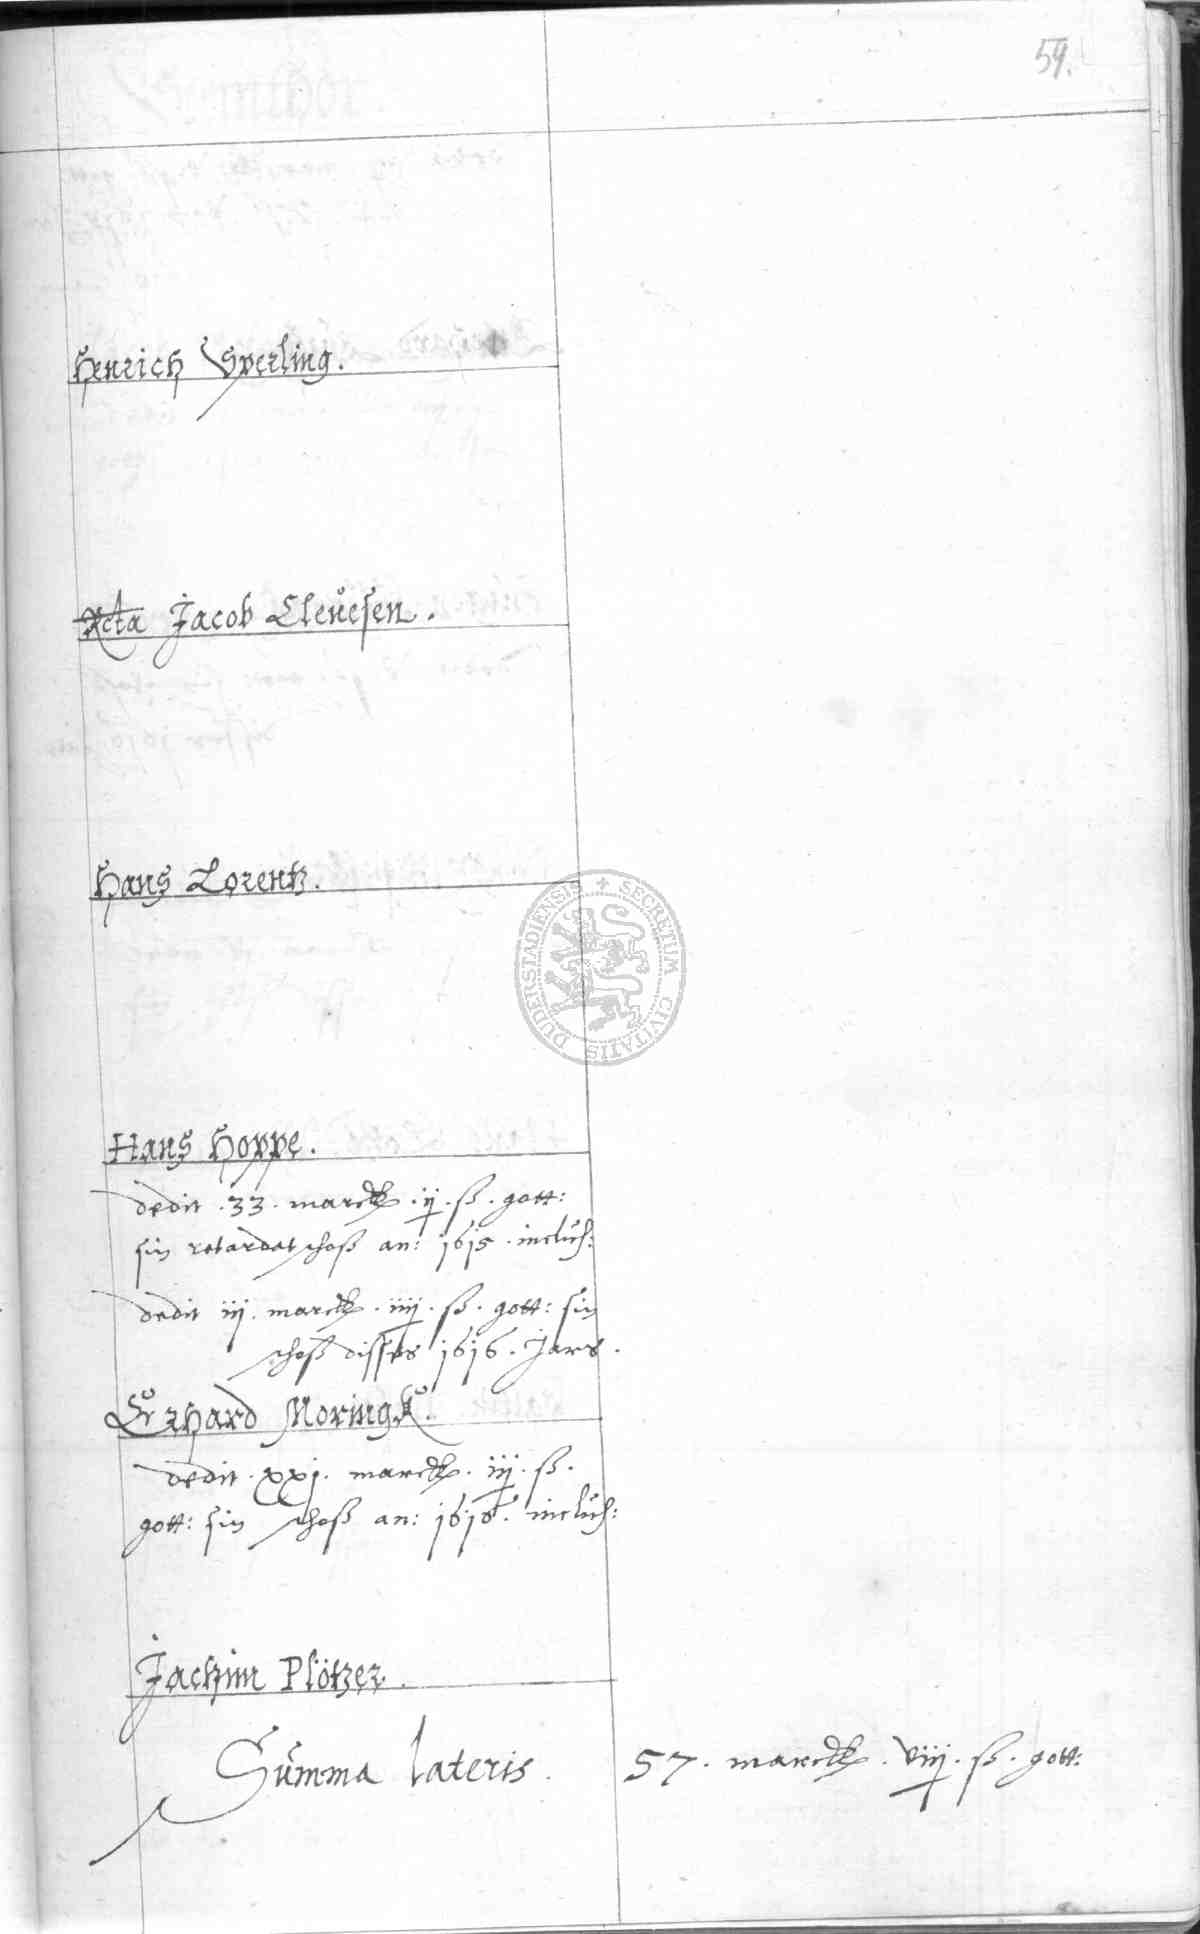 59.
Henrich Sperling.
Acta Jacob Cleuesen.
Hans Lorentz.
DUDERSTADIENSIS + SECRETUM CIVITATIS
Hans Hoppe.
dedit . 33 . marck . ij . ß . gott:
sin retardat schoß an: 1615 . inclus:
dedit iij . marck . iiij . ß . gott: sin
schoß disses 1616 . Jars .
Erhard Moringk.
dedit . xxj . marck . iij . ß .
gott: sin schoß an: 1616 . inclus:
Jachim Plötzer.
Summa lateris . 57 . marck . viij . ß . gott: